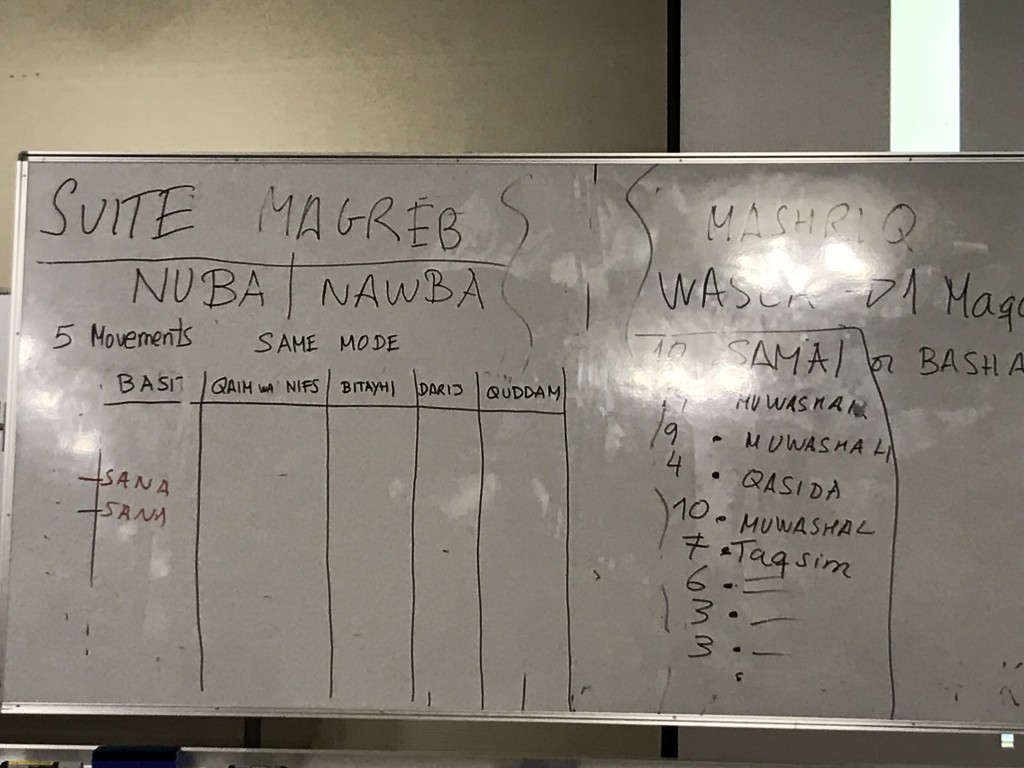 SUITE MAGREB
NUBA | NAWBA
5 Movements SAME MODE
BASIT QAIM wa NIFS BITAYHI DARIJ QUDDAM
SANA
SANA
MASHRIQ
WASLA → 1 Maqa
10 SAMAI or BASHA
MUWASHAH
9 • MUWASHAH
4 • QASIDA
10 • MUWASHAH
7 • Taqsim
6 • —
3 • —
3 • —